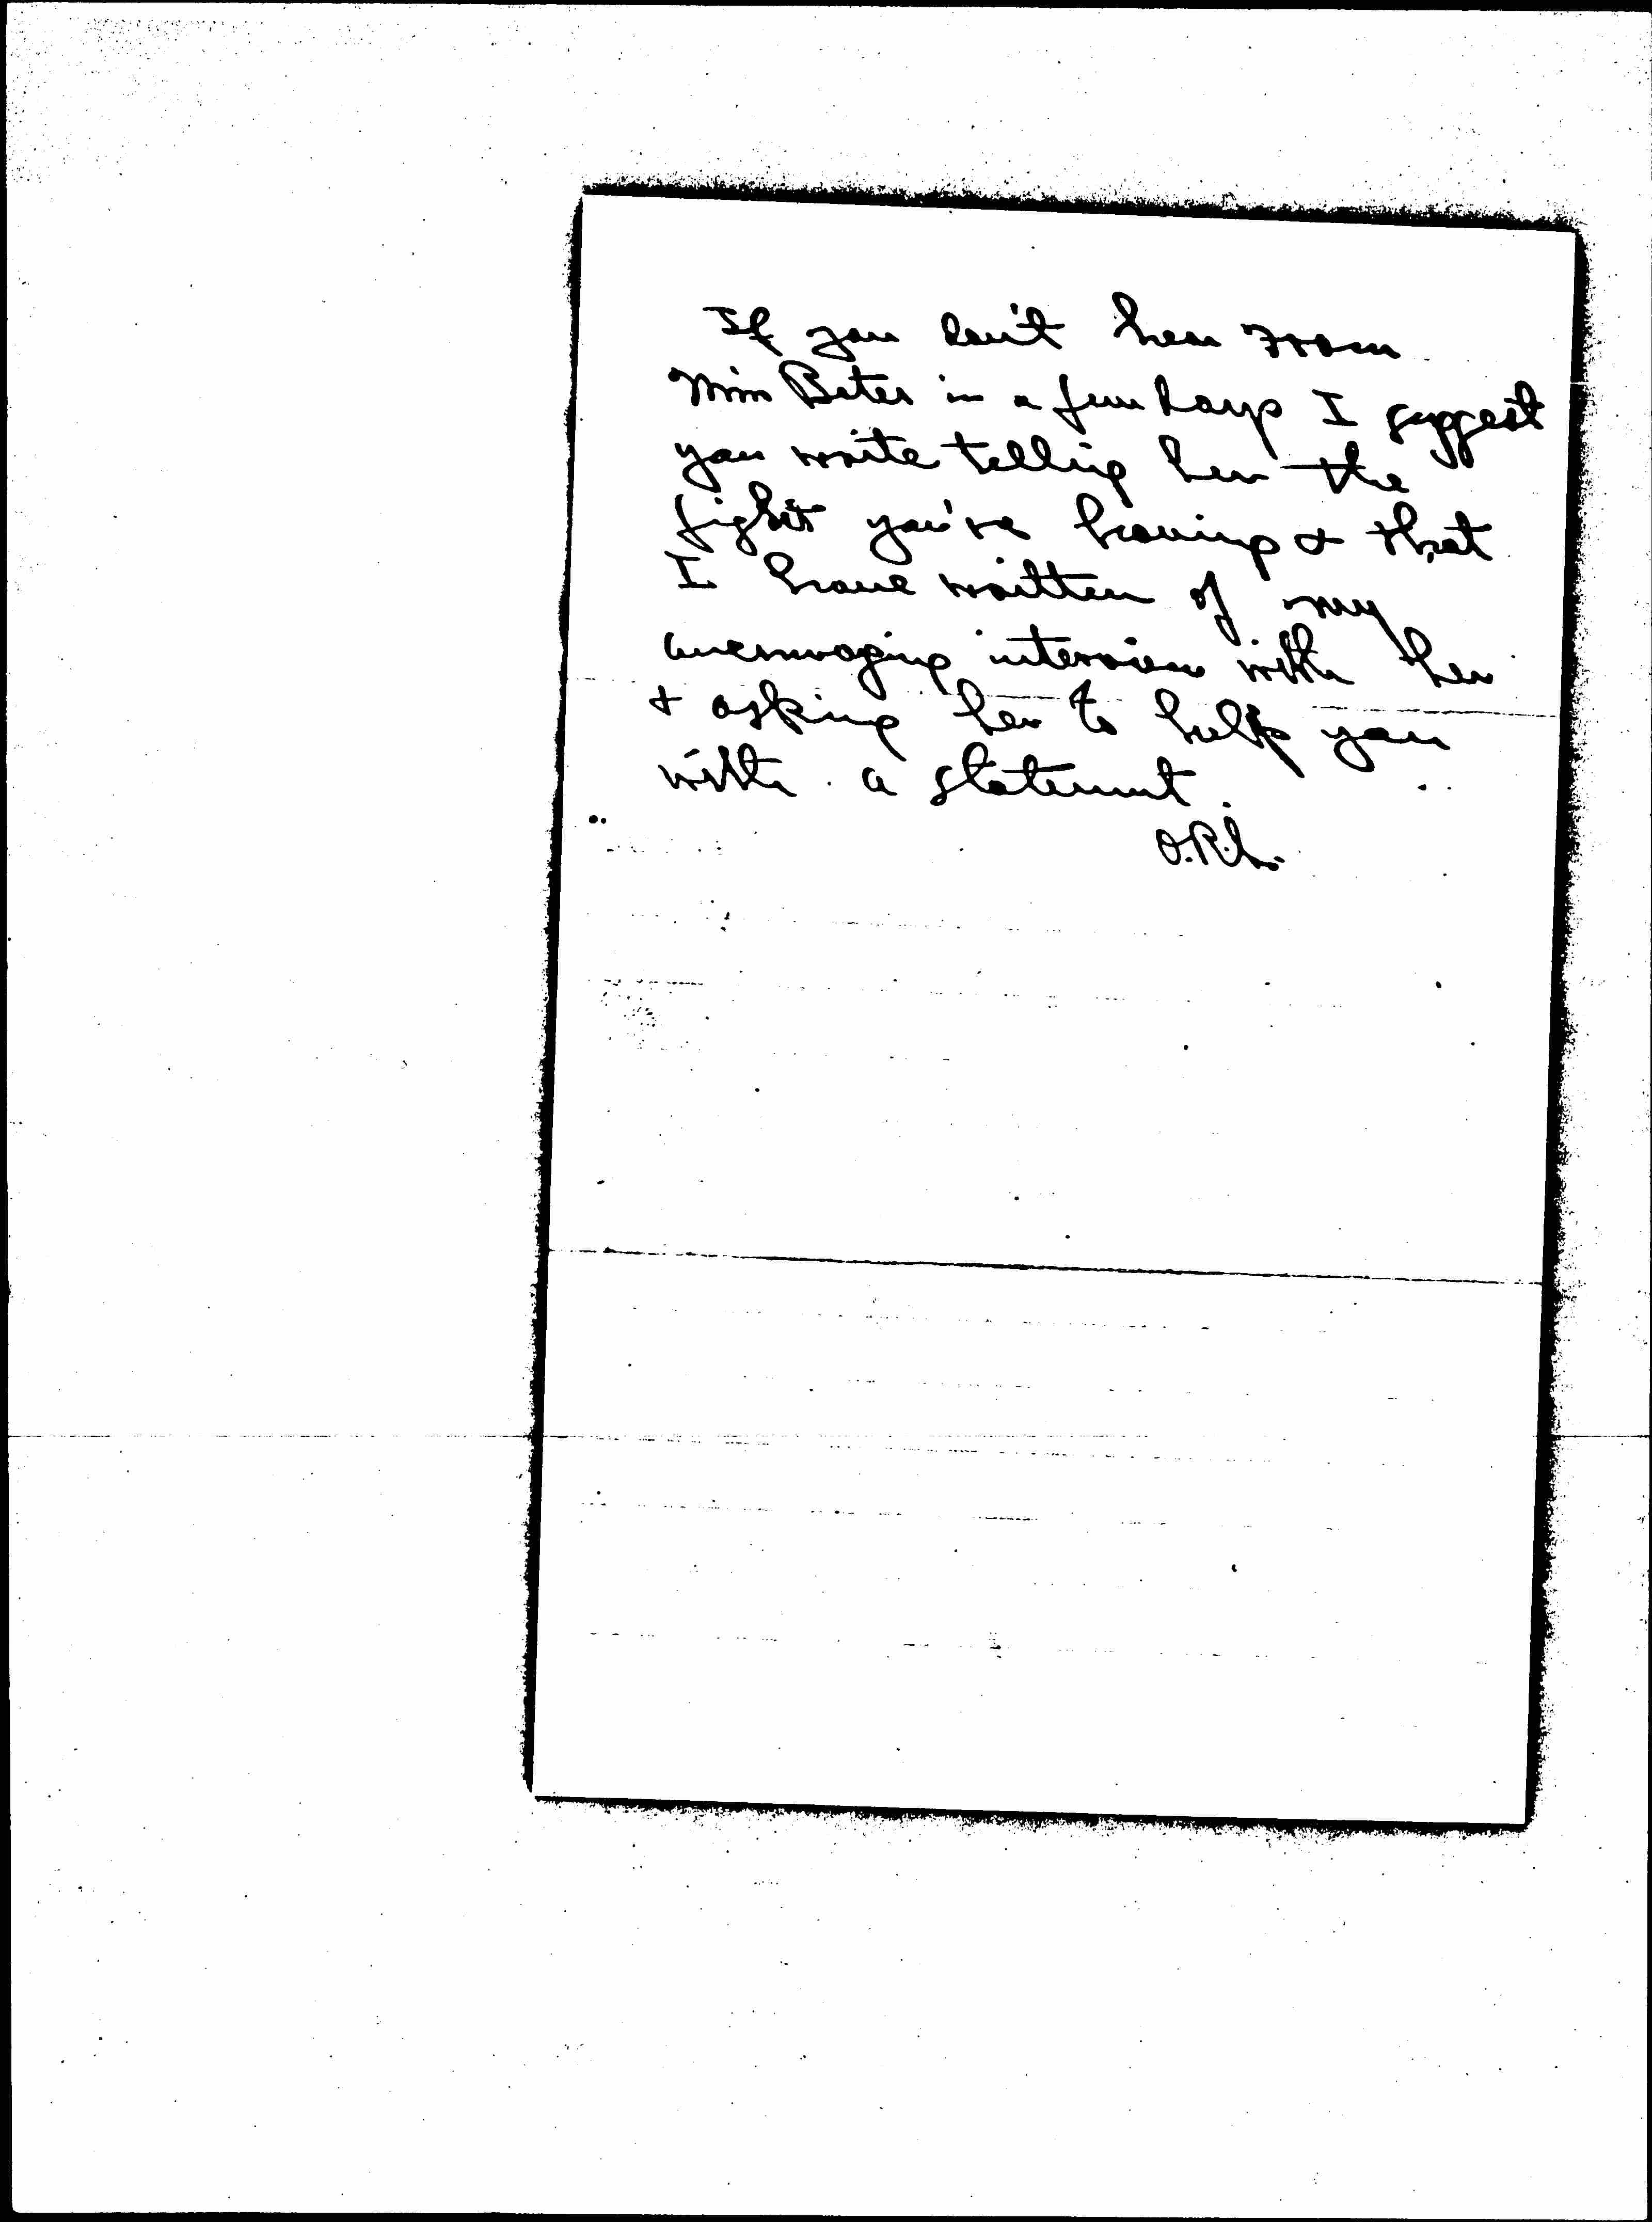 If you don't hear from
Miss Bates in a few days I suggest
you write telling her the
fight you're having & that
I have written of my
encouraging interview with her
& asking her to help you
with a statement.
O.R.L.